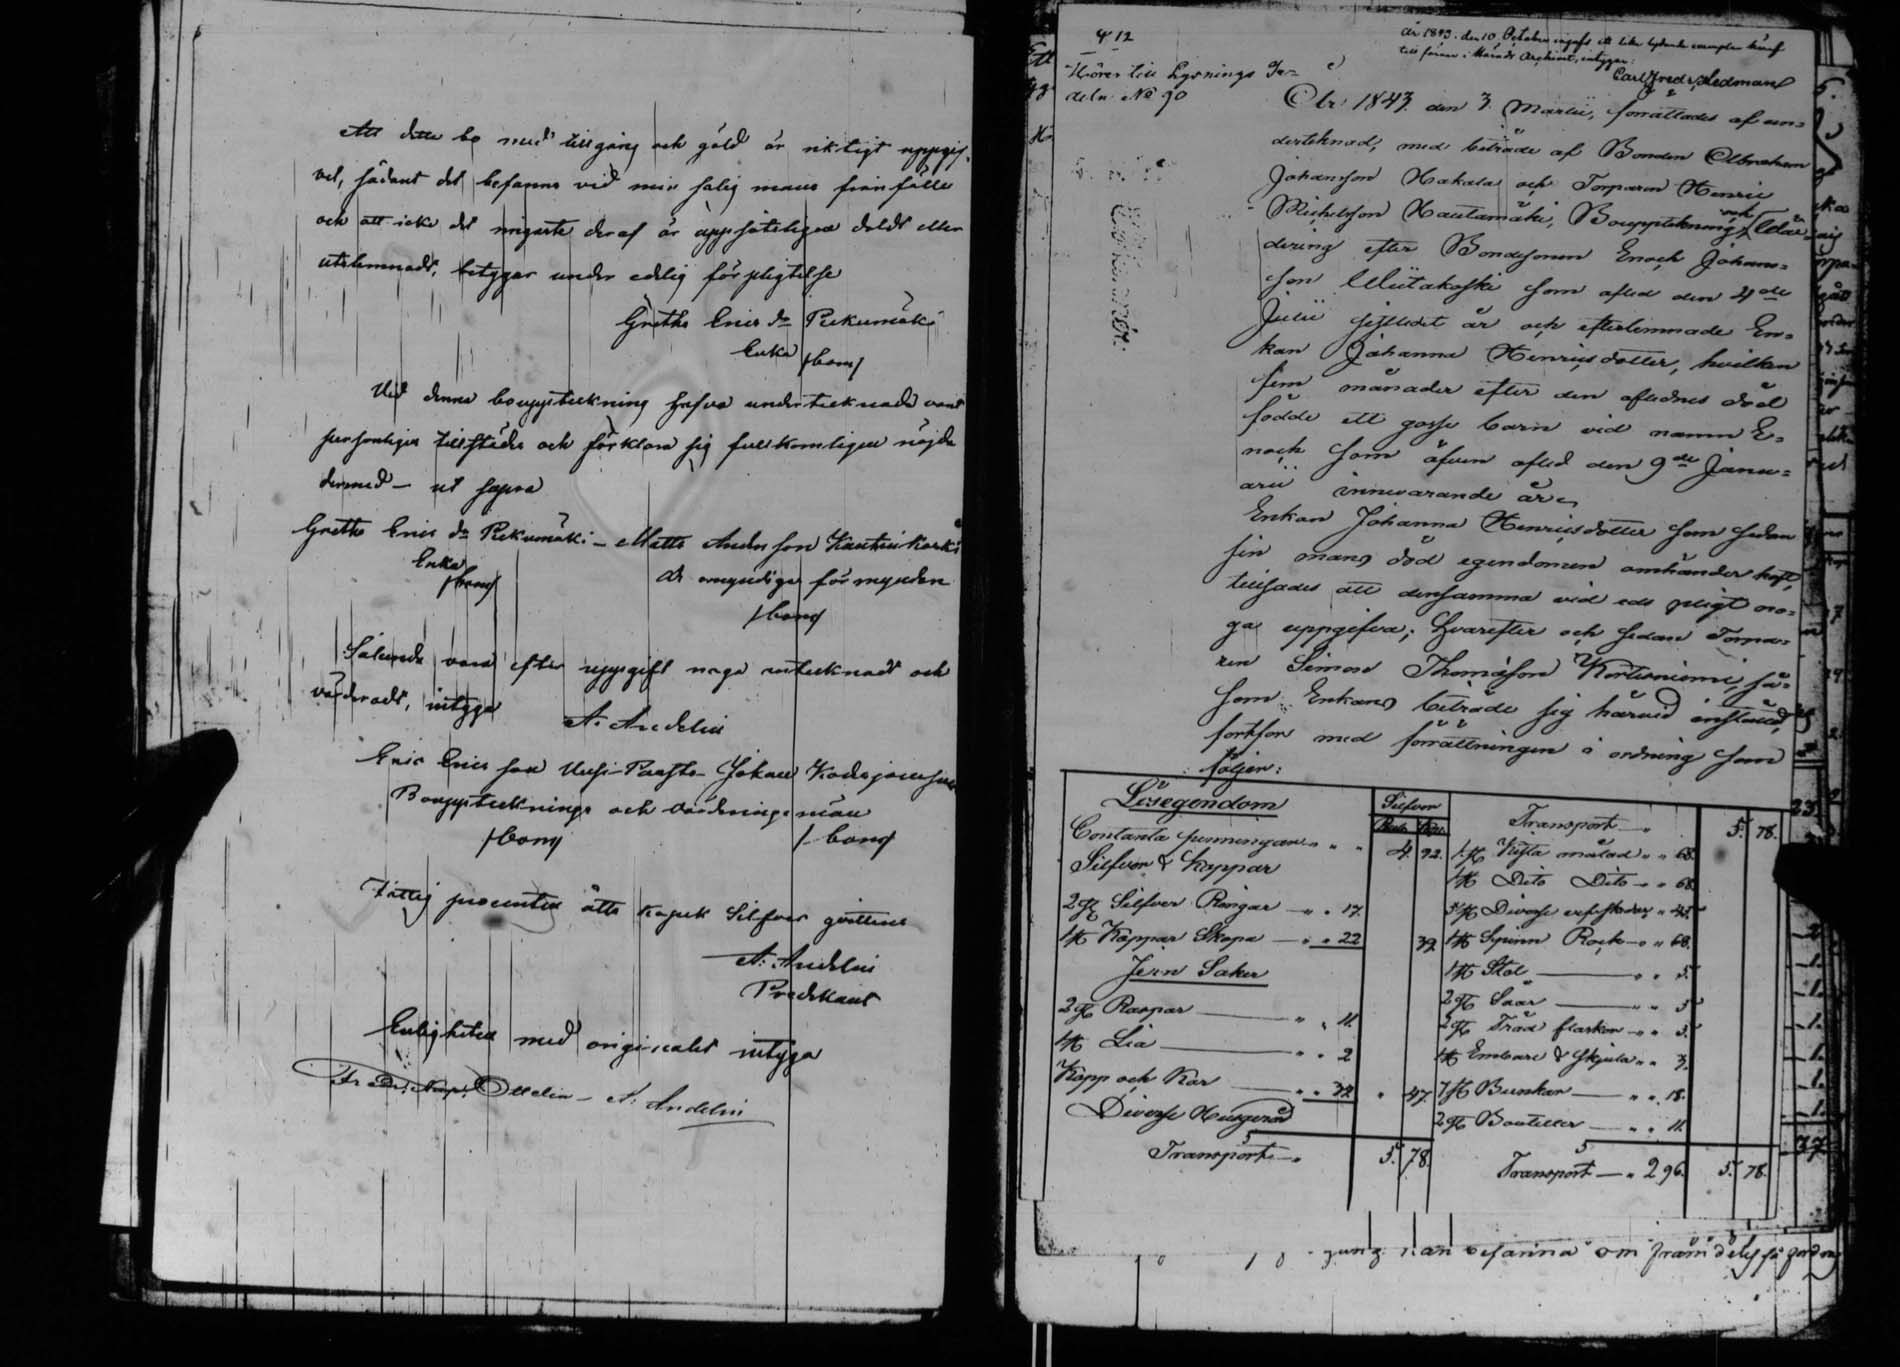 Att detta bo med tillgång och gäld är riktigt uppgif-
vet, sådant det befanns vid min salig mans frånfälle
och att icke det ringaste deraf är uppsåteligen doldt eller
utelemnadt, betygar under edlig förpligtelse
Greta Erics dr Pekumäki
Enka
/bom/
Vid denna bouppteckning hafva undertecknade varit
personligen tillstädes och förklara sig fullkomligen nöjda
dermed – ut supra
Greta Erics dr Pekumäki – Matts Andersson
Enka
/bom/
de omyndigas förmyndare
/bom/
Sålunda vara efter uppgift noga antecknadt och
värderadt, intyga
A. Andelin
Eric Ericsson Johan
Boupptecknings och värderings män
/bom/ /bom/
Fattig procenten åtta kopek Silfver qvitteras
A. Andelin
Predikant
Enligheten med originalet intyga
A. Andelin
12
Hörer till Lysnings Er=
deln No 90
År 1843. den 10 October ingafs ett lika lydande exemplar häraf
till förvar i Härads Archivet, intygar:
Carl Fredr. Hedman
År 1843. den 3. Martii, förrättades af un=
dertecknad, med biträde af Bonden Abraham
Johansson Hakala och Torparen Henric
Michelsson Hautamäki, Bouppteckning och Vär=
dering efter Bondesonen Enoch Johans=
son som afled den 4de
Julii sistledet år och efterlemnade En=
kan Johanna Henricsdotter, hvilken
fem månader efter den aflednes död
födde ett gosse barn vid namn E=
noch som äfven afled den 9de Janu=
arii innevarande år.
Enkan Johanna Henricsdotter som sedan
sin mans död egendomen omhänder haft,
tillsades att densamma vid eds pligt no=
ga uppgifva; hvarefter och sedan Torpa=
ren Simon Thomasson Kortesniemi, så=
som Enkans biträde sig härvid inställt,
fortfor med förrättningen i ordning som
följer:
Lösegendom Silfver
Rub. Kop.
Contanta penningar " " 4. 92.
Silfver & Koppar
2 st Silfver Ringar — " " 17.
1 st Koppar Skopa — " " 22 39.
Jern Saker
2 st Raspar — " " 11.
1 st Lia — " " 2
Kopp och Kar — " " 32 " 47.
Diverse Husgeråd
Transport — " 5. 78.
Transport — " 5. 78.
1 st Kista målad " " 68.
1 st Dito Dito " " 68.
5 st Diverse " 45.
1 st Spinn Rock " " 68.
1 st Stol — " " 5.
2 st Såår — " " 5
2 st Träd flaskor " " 5.
1 st Embare & Skjula " " 3.
7 st Bunkar — " " 18.
2 st Bouteller — " " 11.
Transport — " 2 96. 5. 78.